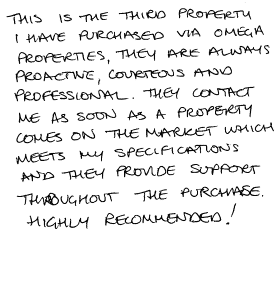 THIS IS THE THIRD PROPERTY
I HAVE PURCHASED VIA OMEGA
PROPERTIES, THEY ARE ALWAYS
PROACTIVE, COURTEOUS AND
PROFESSIONAL. THEY CONTACT
ME AS SOON AS A PROPERTY
COMES ON THE MARKET WHICH
MEETS MY SPECIFICATIONS
AND THEY PROVIDE SUPPORT
THROUGHOUT THE PURCHASE.
HIGHLY RECOMMENDED!